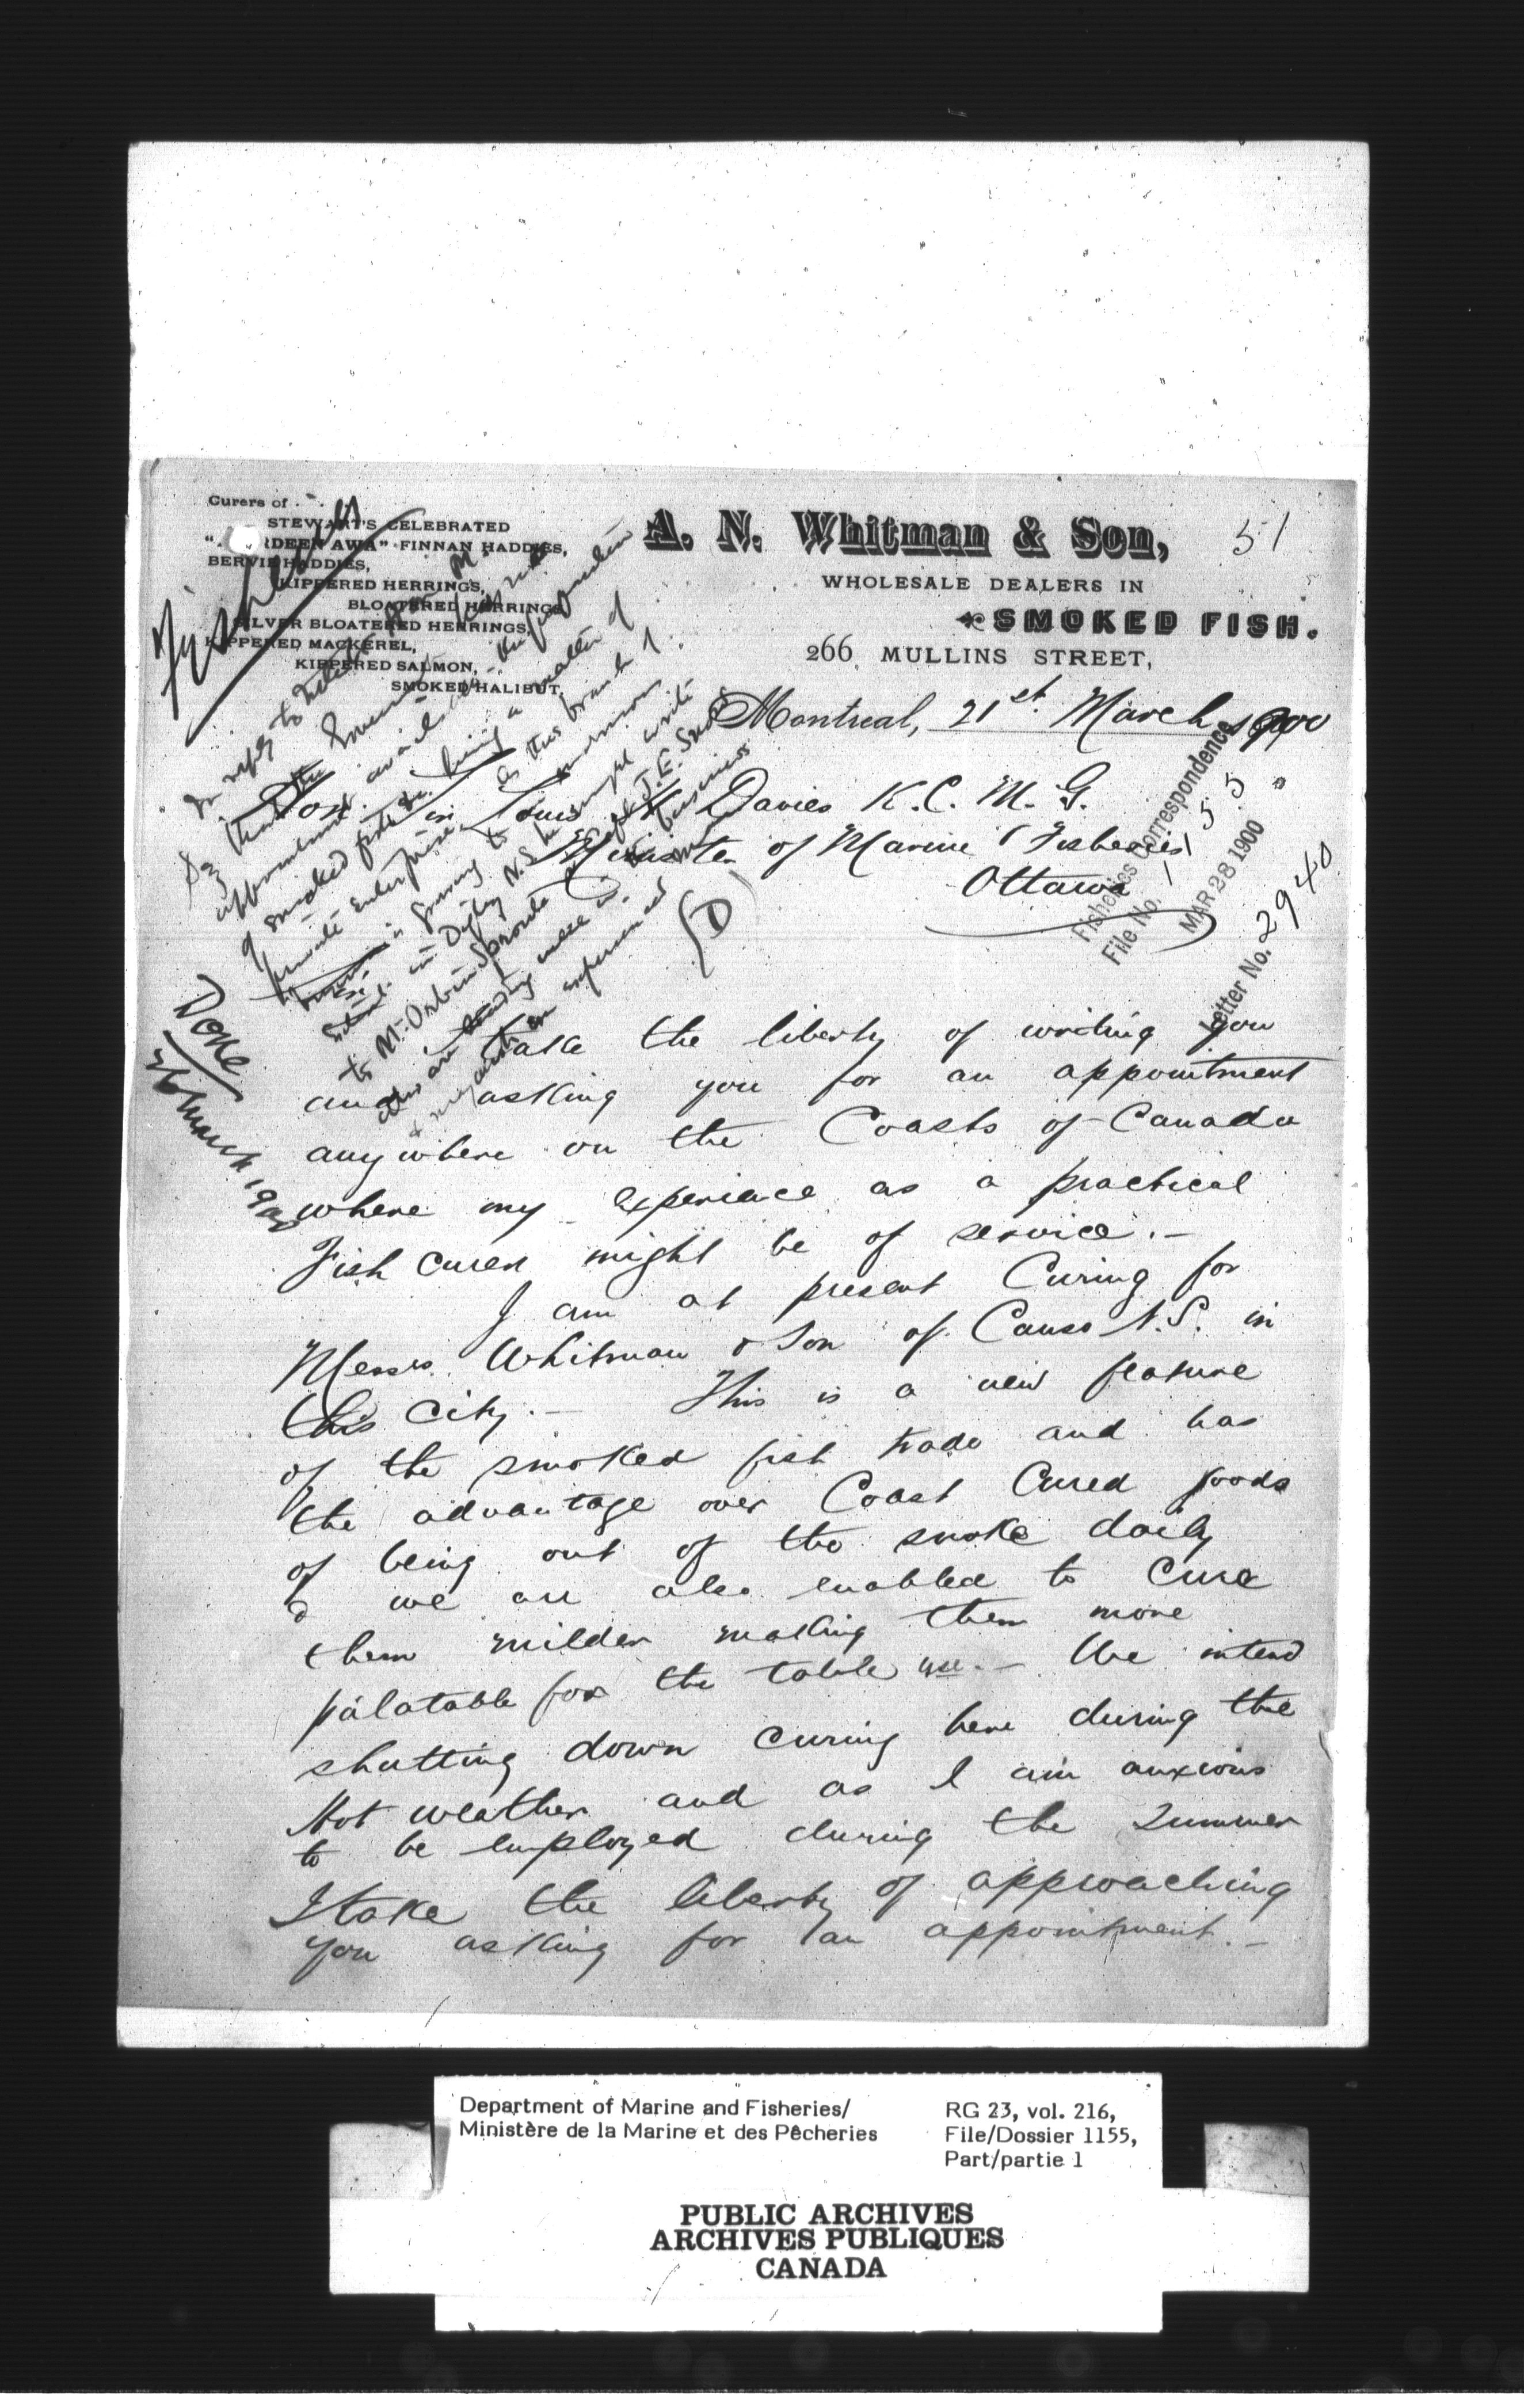 Curers of
STEWART'S CELEBRATED
"A RDEEN AWA" FINNAN HADDIES,
BERVIE HADDIES,
KIPPERED HERRINGS,
BLOATERED HERRINGS
SILVER BLOATERED HERRINGS,
KIPPERED MACKEREL,
KIPPERED SALMON,
SMOKED HALIBUT.
Fisheries
A. N. Whitman & Son,
51
WHOLESALE DEALERS IN
SMOKED FISH.
266 MULLINS STREET,
Montreal, 21st March 1900
Hon Sir Louis H Davies K.C.M.G.
Minister of Marine & Fisheries
Ottawa
Fisheries Correspondence
File No. 1155
MAR 28 1900
Letter No. 2940
In reply to letter
Say that the
appointment available
of smoked fish &c. being a matter of
private enterprise
in Digby N.S. he might write
to Mr. Orbin Sproule Capt J.E. Snow
Done
26 March 1900
I take the liberty of writing you
and asking you for an appointment
anywhere on the Coasts of Canada
where my experience as a practical
Fish curer might be of service.—
I am at present Curing for
Messrs Whitman & Son of Canso N.S. in
this City.— This is a new feature
of the smoked fish trade and has
the advantage over Coast Cured goods
of being out of the smoke daily
& we are also enabled to cure
them milder making them more
palatable for the table use.— We intend
shutting down curing here during the
Hot weather and as I am anxious
to be employed during the Summer
I take the liberty of approaching
you asking for an appointment.—
Department of Marine and Fisheries/
Ministère de la Marine et des Pêcheries
RG 23, vol. 216,
File/Dossier 1155,
Part/partie 1
PUBLIC ARCHIVES
ARCHIVES PUBLIQUES
CANADA